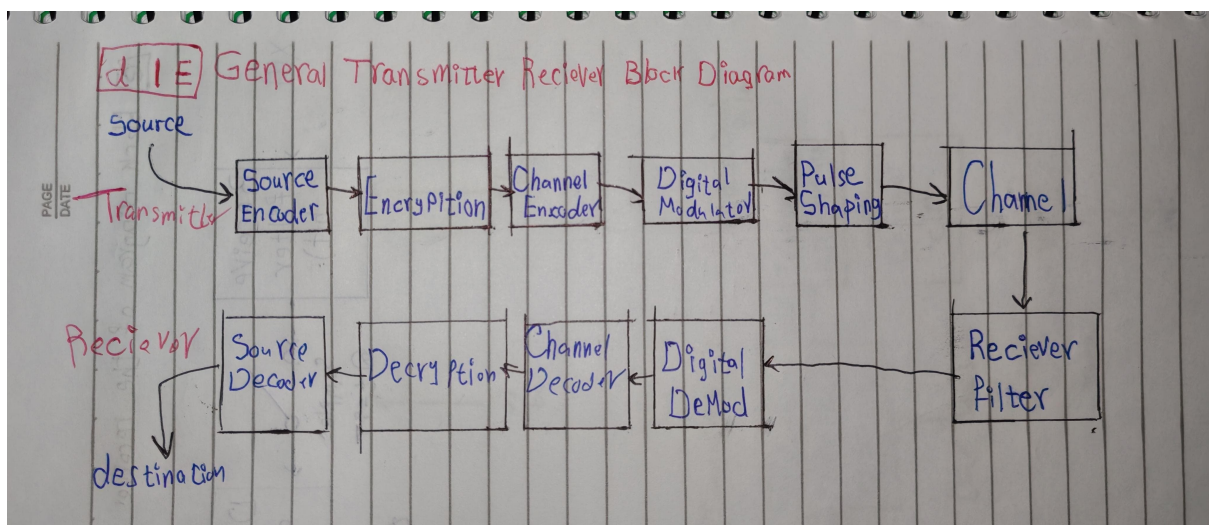 d I E General Transmitter Reciever Block Diagram
Source
PAGE
DATE
Transmitter
Source
Encoder
Encryption
Channel
Encoder
Digital
Modulator
Pulse
Shaping
Channel
Reciever
Source
Decoder
Decryption
Channel
Decoder
Digital
DeMod
Reciever
Filter
destination